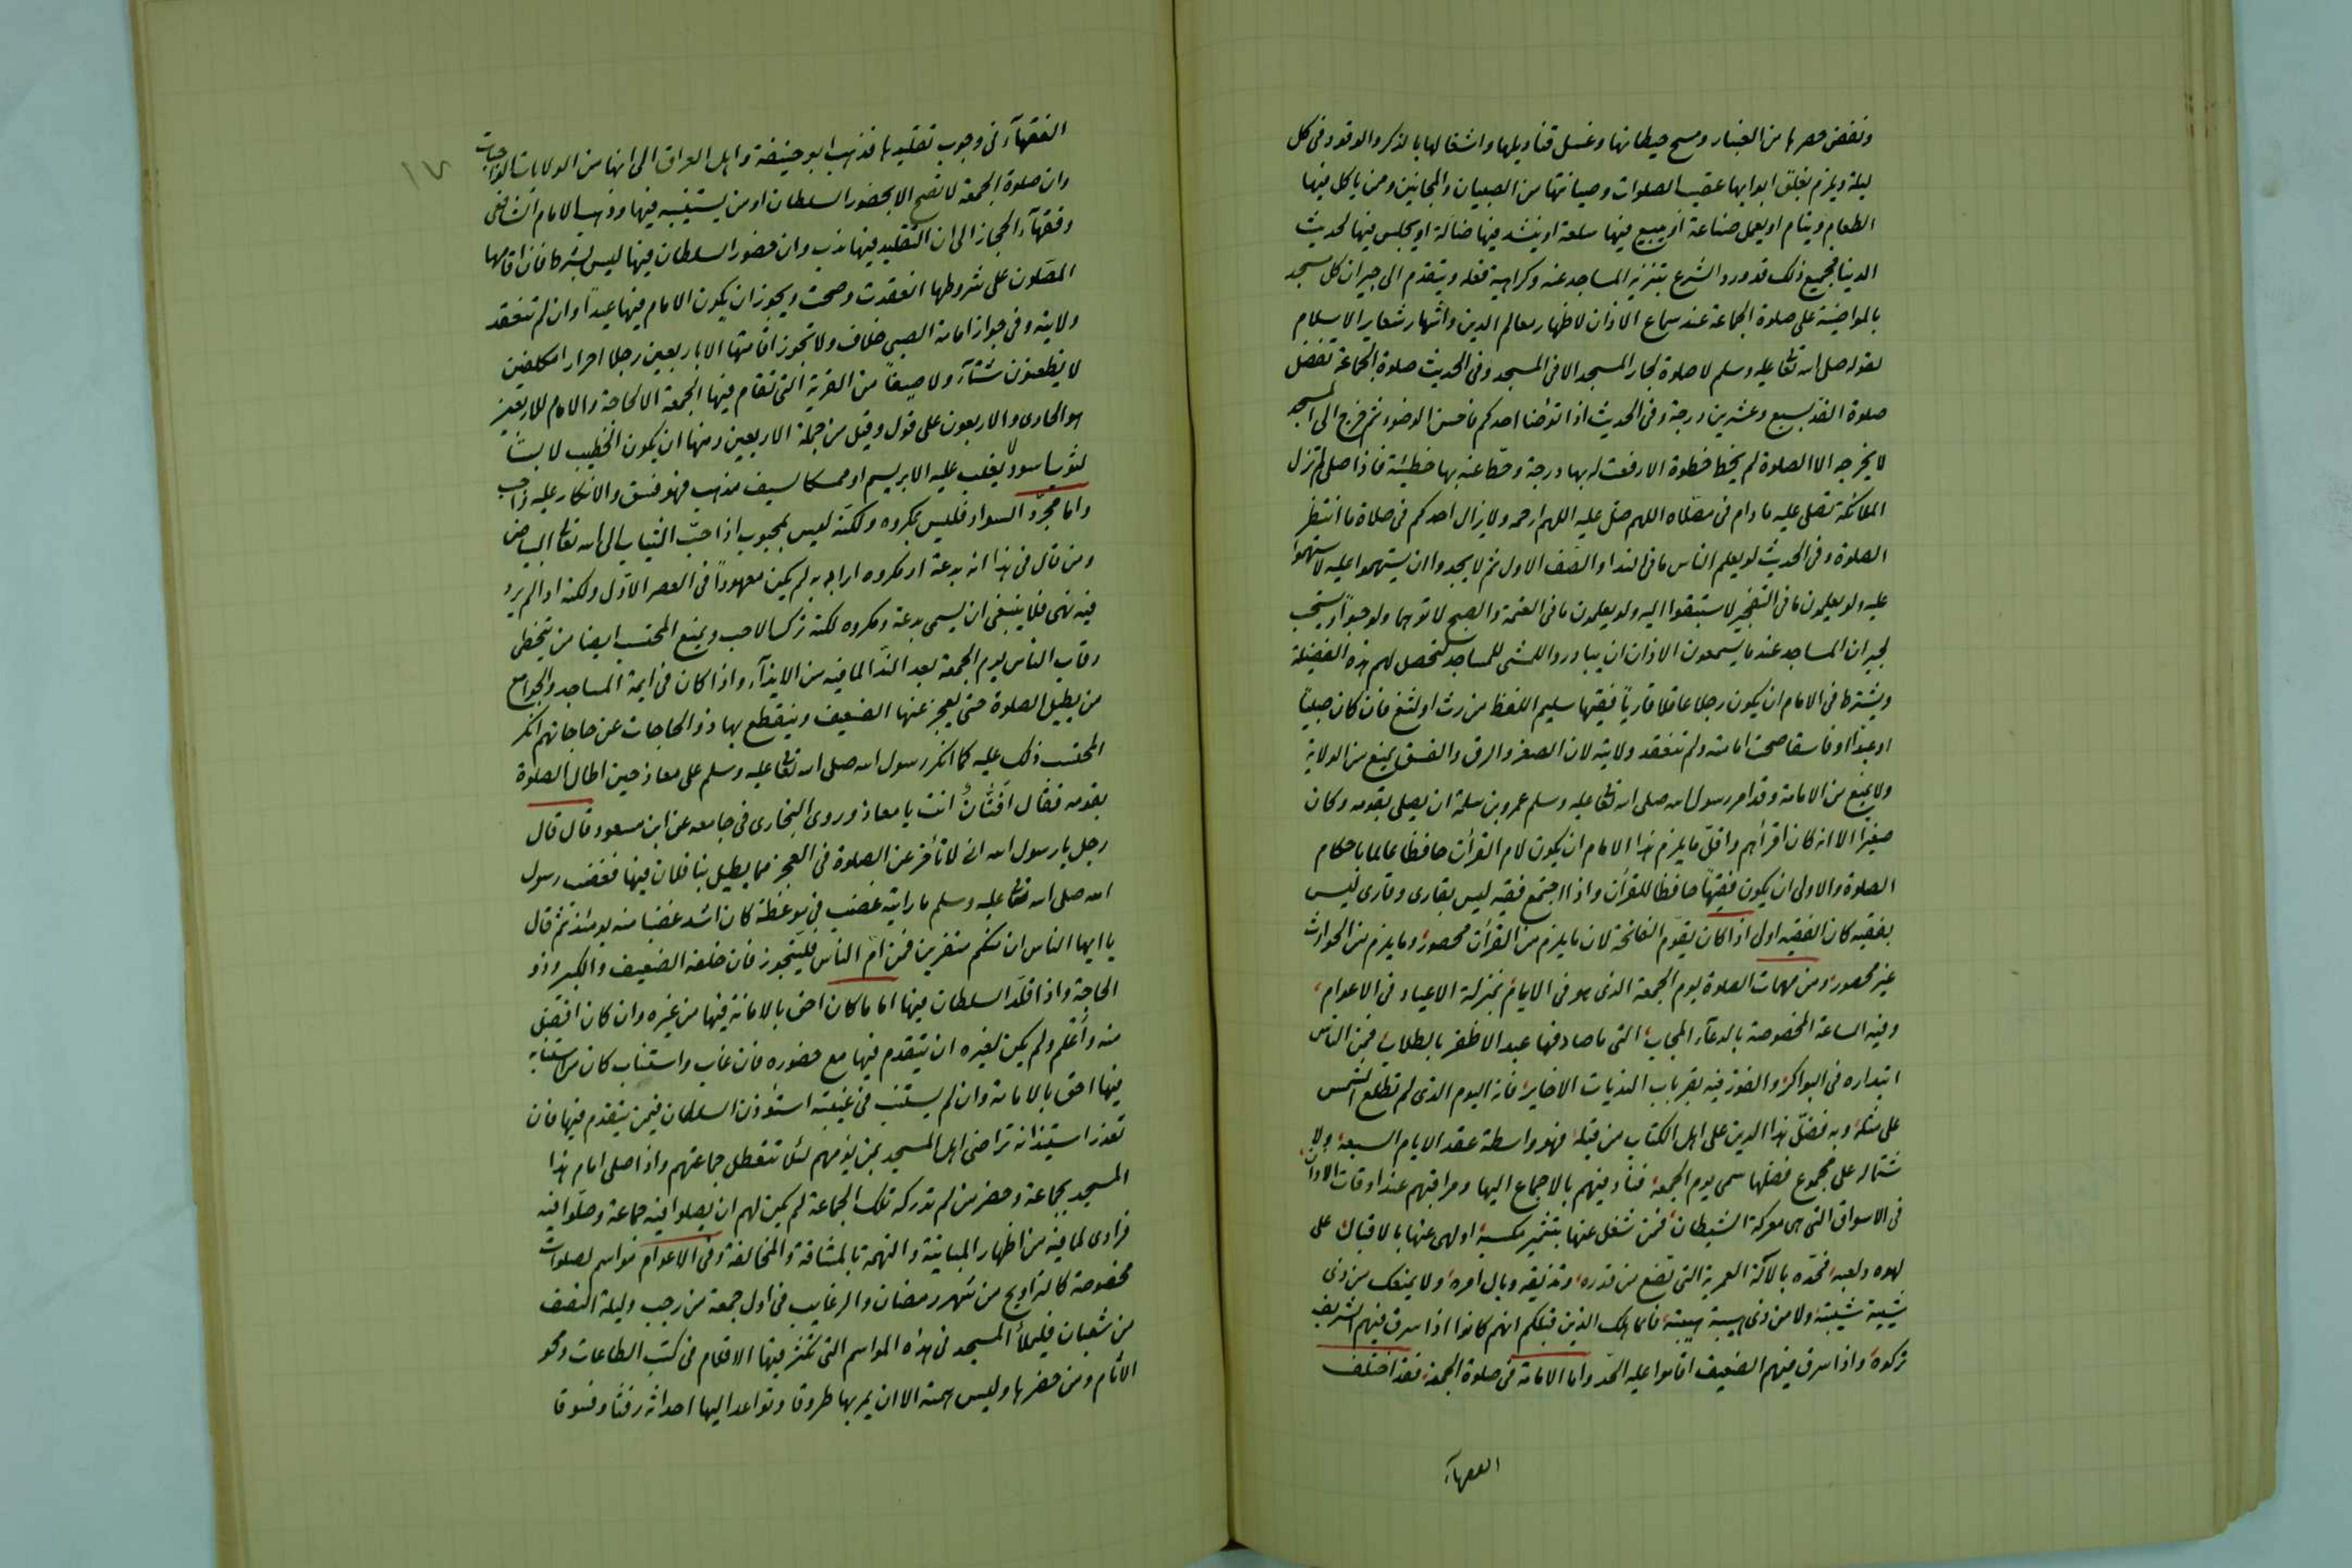 ونفض حصرها من الغبار ومسح حيطانها وغسل قناديلها واشغالها بالذكر والوقود في كل
ليلة ويلزم بغلق ابوابها عقيب الصلوات وصيانتها من الصبيان والمجانين ومن ياكل فيها
الطعام وينام او يعمل صناعة او يبيع فيها سلعة او ينشد فيها ضالة او يجلس فيها لحديث
الدنيا فجميع ذلك قد ورد الشرع بتنزيه المساجد عنه وكراهية فعله ويتقدم الى جيران كل مسجد
بالمواضبة على صلوة الجماعة عند سماع الاذان لاظهار معالم الدين واشهار شعاير الاسلام
لقوله صلى الله تعا عليه وسلم لا صلوة لجار المسجد الا في المسجد وفي الحديث صلوة الجماعة تفضل
صلوة الفذ بسبع وعشرين درجة وفي الحديث اذا توضا احدكم فاحسن الوضوء ثم خرج الى المسجد
لا يخرجه الا الصلوة لم يخط خطوة الا رفعت له بها درجة وحطّ عنه بها خطيئة فاذا صلى لم تزل
الملائكة تصلى عليه ما دام في مصلاه اللهم صل عليه اللهم ارحمه ولا يزال احدكم في صلاة ما انتظر
الصلوة وفي الحديث لو يعلم الناس ما في الندا والصف الاول ثم لا يجدوا ان يستهموا عليه لاستهموا
عليه ولو يعلمون ما في التهجير لاستبقوا اليه ولو يعلمون ما في العتمة والصبح لاتوهما ولو حبواً ويستحب
لجيران المساجد عند ما يسمعون الاذان ان يبادروا للمشى للمساجد لتحصل لهم هذه الفضيلة
ويشترط في الامام ان يكون رجلا عاقلا قارياً فقيها سليم اللفظ من رث او لثغ فان كان صبياً
او عبدا او فاسقا صحت امامته ولم تنعقد ولايته لان الصغر والرق والفسق يمنع من الولاية
ولا يمنع من الامامة وقد امر رسول الله صلى الله تعا عليه وسلم عمرو بن سلمة ان يصلى بقومه وكان
صغيرا الا انه كان اقرأهم واقل ما يلزم هذا الامام ان يكون لام القرأن حافظا عالما باحكام
الصلوة والاولى ان يكون فقيها حافظا للقرأن واذا اجتمع فقيه ليس بقارى وقارى ليس
بفقيه كان الفقيه اولى اذا كان يقوم الفاتحة لان ما يلزم من القرأن محصور وما يلزم من الحوادث
غير محصور ومن مهمات الصلوة يوم الجمعة الذى هو في الايام بمنزلة الاعياد في الاعوام
وفيه الساعة المخصوصة بالدعاء المجاب التى ما صادفها عبد الا ظفر بالطلاب فمن الناس
ابتداره في البواكر والفوز فيه بقربات البدنات الاخاير فانه اليوم الذى لم تطلع الشمس
على مثله وبه فضل هذا الدين على اهل الكتاب من قبله فهو واسطة عقد الايام السبعة ولا
شتماله على مجموع فضلها سمى يوم الجمعة فناد فيهم بالاجماع اليها ومراقبتهم عند اوقات الاذان
في الاسواق التى هى معركة الشيطان فمن شغل عنها بتثمير مكسبه او لهى عنها بالاقبال على
لهوه ولعبه فخذه بالآلة العمرية التى تضع من قدره وتذيقه وبال امره ولا يمنعك من ذى
شيبة شيبته ولا من ذى هيبة هيبته فانما هلك الذين قبلكم انهم كانوا اذا سرق فيهم الشريف
تركوه واذا سرق فيهم الضعيف اقاموا عليه الحد واما الامامة في صلوة الجمعة فقد اختلف
الفقهآء
١٧
الفقهآء في وجوب تقليدها فذهب ابو حنيفة واهل العراق الى انها من الولايات الواجبات
وان صلوة الجمعة لا تصح الا بحضور السلطان او من يستنيبه فيها وذهب الامام الشافعى
وفقهآء الحجاز الى ان التقليد فيها ندب وان حضور السلطان فيها ليس بشرط فان اقامها
المصلون على شروطها انعقدت وصحت ويجوز ان يكون الامام فيها عبداً وان لم تنعقد
ولايته وفي جواز امامة الصبى خلاف ولا تجوز اقامتها الا باربعين رجلا احرارا مكلفين
لا يظعنون شتآء ولا صيفاً من القرية التى تقام فيها الجمعة الا لحاجة والامام للاربعين
هو الحادى والاربعون على قول وقيل من جملة الاربعين ومنها ان يكون الخطيب لا بساً
ثوبا سودا يغلب عليه الابريسم او ممسكا لسيف مذهب فهو فسق والانكار عليه واجب
واما مجرّد السواد فليس بمكروه ولكنه ليس بمحبوب اذ احب الثياب الى الله تعالى البياض
ومن قال في هذا انه بدعة او مكروه اراد به لم يكن معهوداً في العصر الاول ولكنه اذا لم يرد
فيه نهى فلا ينبغى ان يسمى بدعة ومكروه لكنه ترك الاحب ويمنع المحتسب ايضا من يتخطى
رقاب الناس يوم الجمعة بعد الندا لما فيه من الايذآء واذا كان في ايمة المساجد والجوامع
من يطيل الصلوة حتى يعجز عنها الضعيف وينقطع بها ذو الحاجات عن حاجاتهم انكر
المحتسب ذلك عليه كما انكر رسول الله صلى الله تعا عليه وسلم على معاذ حين اطال الصلوة
بقومه فقال افتّان انت يا معاذ وروى البخارى في جامعه عن ابن مسعود قال قال
رجل يا رسول الله انى لا تأخر عن الصلوة في الفجر مما يطيل بنا فلان فيها فغضب رسول
الله صلى الله تعا عليه وسلم ما رايته غضب في موعظة كان اشد غضبا منه يومئذ ثم قال
يا ايها الناس ان منكم منفرين فمن امّ الناس فليتجوز فان خلفه الضعيف والكبير وذو
الحاجة واذا قلد السلطان فيها اماما كان احق بالامامة فيها من غيره وان كان افضل
منه واعلم ولم يكن لغيره ان يتقدم فيها مع حضوره فان غاب واستناب كان من استنابه
فيها احق بالامامة وان لم يستنب في غيبته استوذن السلطان فيمن يتقدم فيها فان
تعذر استيذانه تراضى اهل المسجد بمن يؤمهم لئلا تتعطل جماعتهم واذا صلى امام هذا
المسجد بجماعة وحضر من لم تدركه تلك الجماعة لم يكن لهم ان يصلوا فيه جماعة وصلّوا فيه
فرادى لما فيه من اظهار المباينة والتهمة بالمشاقة والمخالفة وفي الاعوام مواسم لصلوات
مخصوصة كالتراويح من شهر رمضان والرغايب في اول جمعة من رجب وليلة النصف
من شعبان فليملأ المسجد في هذه المواسم التى تكثر فيها الاقلام في كتب الطاعات ومحو
الآثام ومن حضرها وليس همته الا ان يمر بها طروقا وتواعد اليها احداثه رفثا وفسوقا